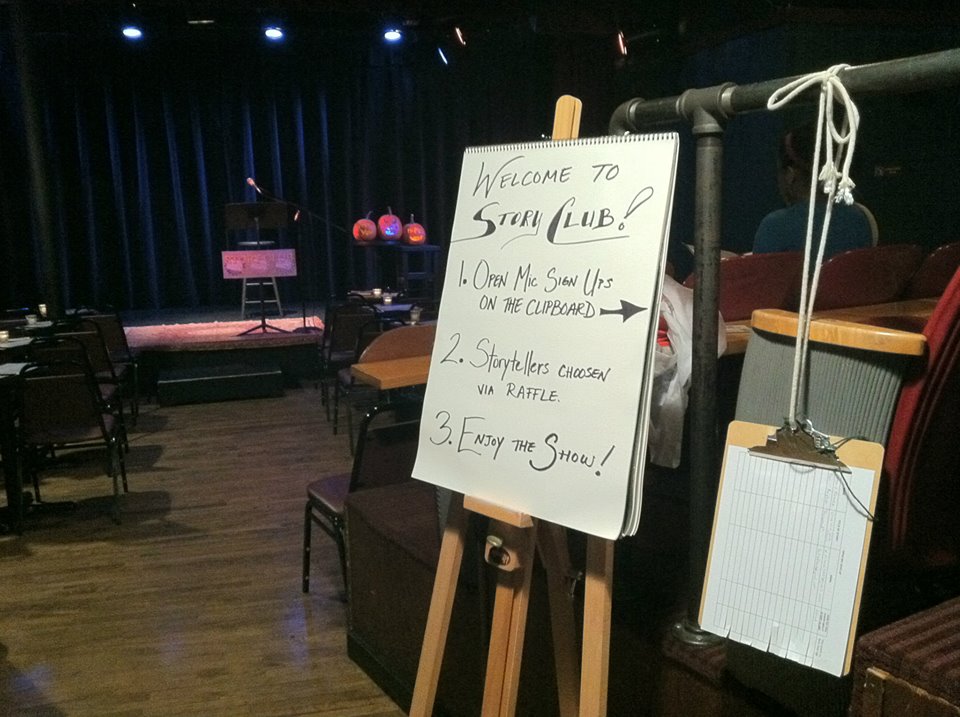 WELCOME TO
STORY CLUB!
1. OPEN MIC SIGN UPS
ON THE CLIPBOARD
2. STORYTELLERS CHOOSEN
VIA RAFFLE.
3. ENJOY THE SHOW!